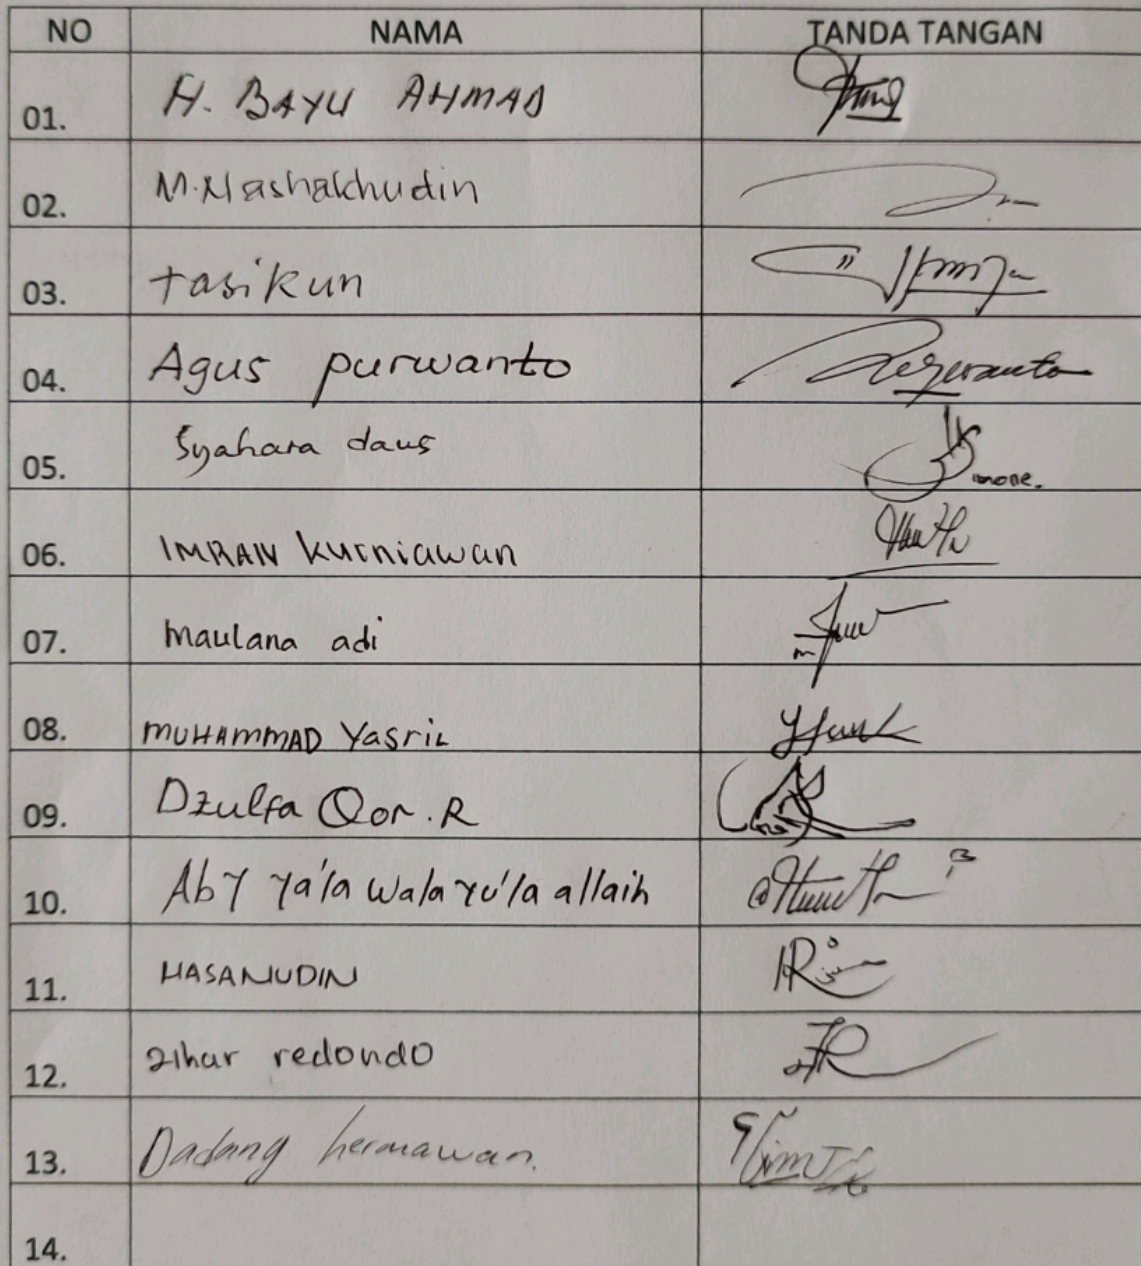 NO NAMA TANDA TANGAN
01. H. BAYU AHMAD
02. M. Mashakhudin
03. tasikun
04. Agus purwanto
05. Syahara daus
06. IMRAN kurniawan
07. maulana adi
08. MUHAMMAD Yasril
09. Dzulfa Qor. R
10. Aby ya'la wala yu'la allaih
11. HASANUDIN
12. zihar redondo
13. Dadang hermawan.
14.